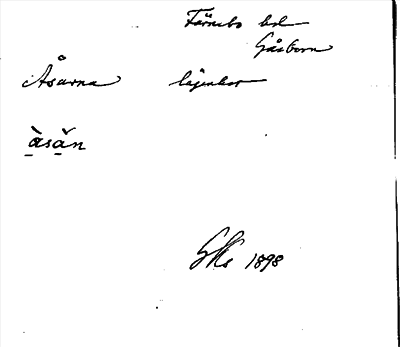 Färnebo hd
Gåsborn
Åsarna lägenhet
àsăn
GKs 1898